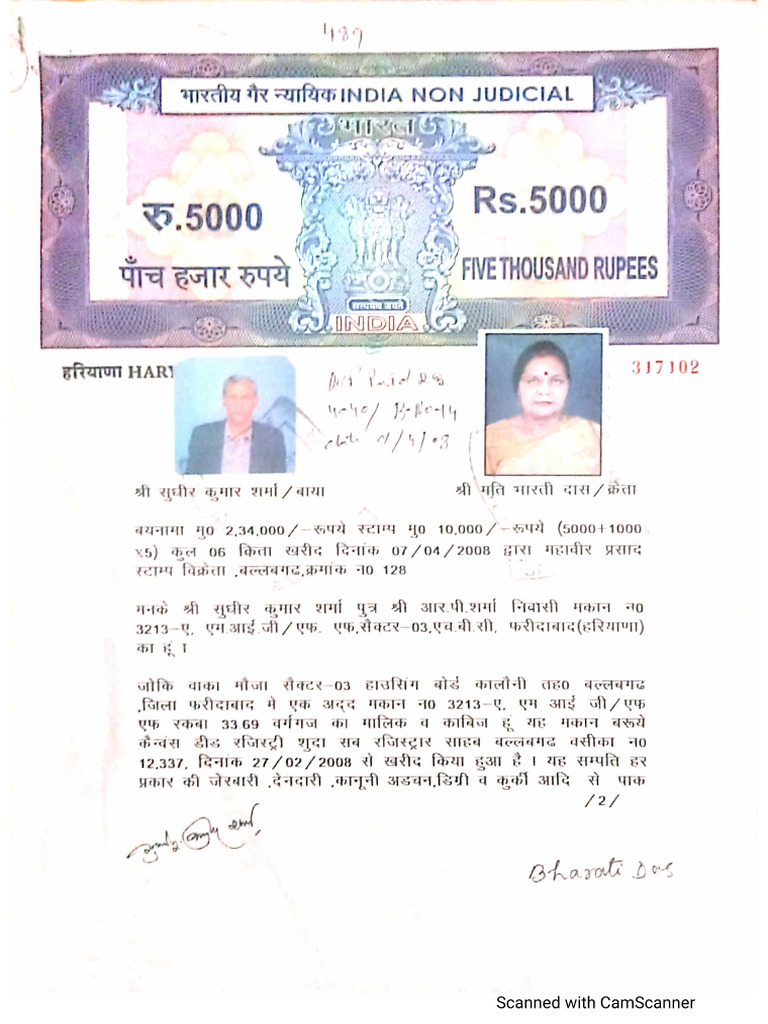 489
भारतीय गैर न्यायिक INDIA NON JUDICIAL
भारत
रु.5000
Rs.5000
पाँच हजार रुपये
FIVE THOUSAND RUPEES
सत्यमेव जयते
INDIA
हरियाणा HARY
317102
श्री सुधीर कुमार शर्मा/बाया
श्री मति भारती दास/क्रेता
बयनामा मु0 2,34,000/-रूपये स्टाम्प मु0 10,000/-रूपये (5000+1000
x5) कुल 06 किता खरीद दिनांक 07/04/2008 द्वारा महावीर प्रसाद
स्टाम्प विक्रेता ,बल्लबगढ,क्रमांक न0 128
मनके श्री सुधीर कुमार शर्मा पुत्र श्री आर.पी.शर्मा निवासी मकान न0
3213-ए, एम.आई.जी/एफ. एफ,सैक्टर-03,एच.बी.सी, फरीदाबाद(हरियाणा)
का हूं ।
जोकि वाका मौजा सैक्टर-03 हाउसिंग बोर्ड कालौनी तह0 बल्लबगढ
,जिला फरीदाबाद मे एक अदद मकान न0 3213-ए, एम आई जी/एफ
एफ रकबा 33.69 वर्गगज का मालिक व काबिज हूं यह मकान बरूये
कैन्वंस डीड रजिस्ट्री शुदा सब रजिस्ट्रार साहब बल्लबगढ वसीका न0
12,337, दिनांक 27/02/2008 से खरीद किया हुआ है । यह सम्पति हर
प्रकार की जेरबारी ,देनदारी ,कानूनी अडचन,डिग्री व कुर्की आदि से पाक
/2/
Bharati Das
Scanned with CamScanner